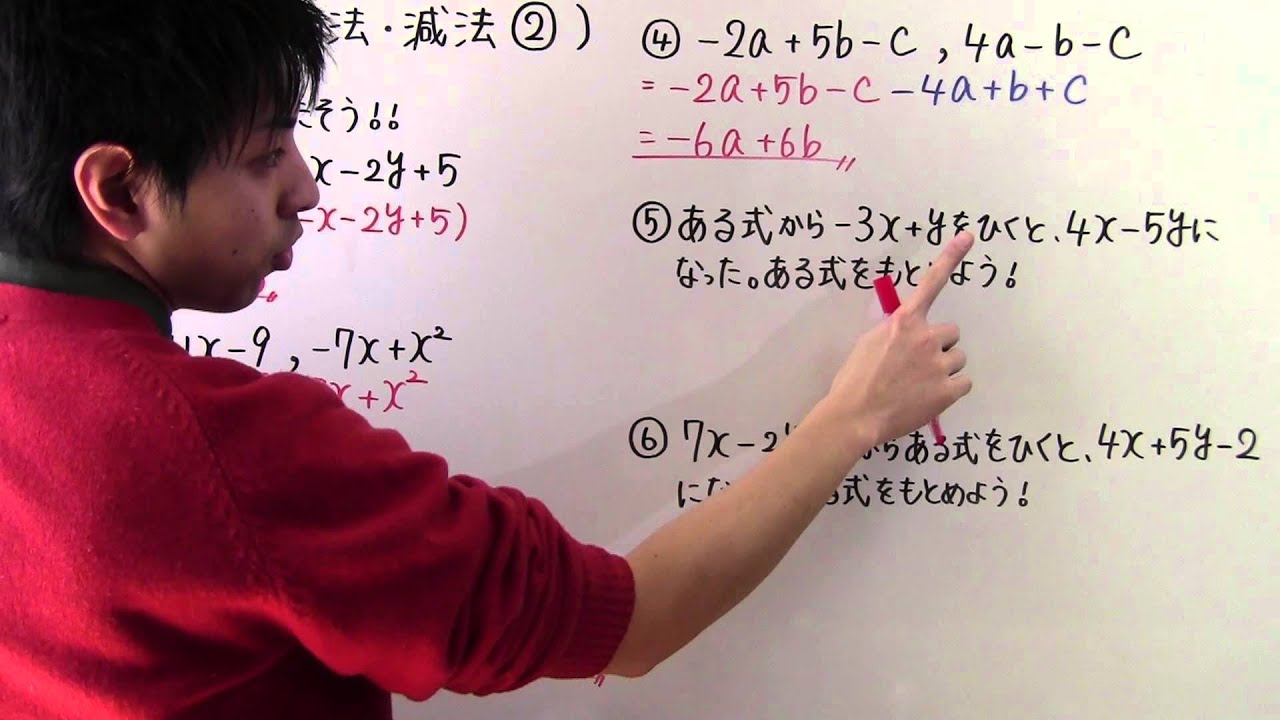 法・減法②)
そう!!
x-2y+5
-x-2y+5)
x-9 , -7x+x²
x+x²
④ -2a+5b-c , 4a-b-c
= -2a+5b-c-4a+b+c
= -6a+6b
⑤ ある式から-3x+yをひくと、4x-5yに
なった。ある式をもと よう!
⑥ 7x-2 らある式をひくと、4x+5y-2
にな 式をもとめよう!